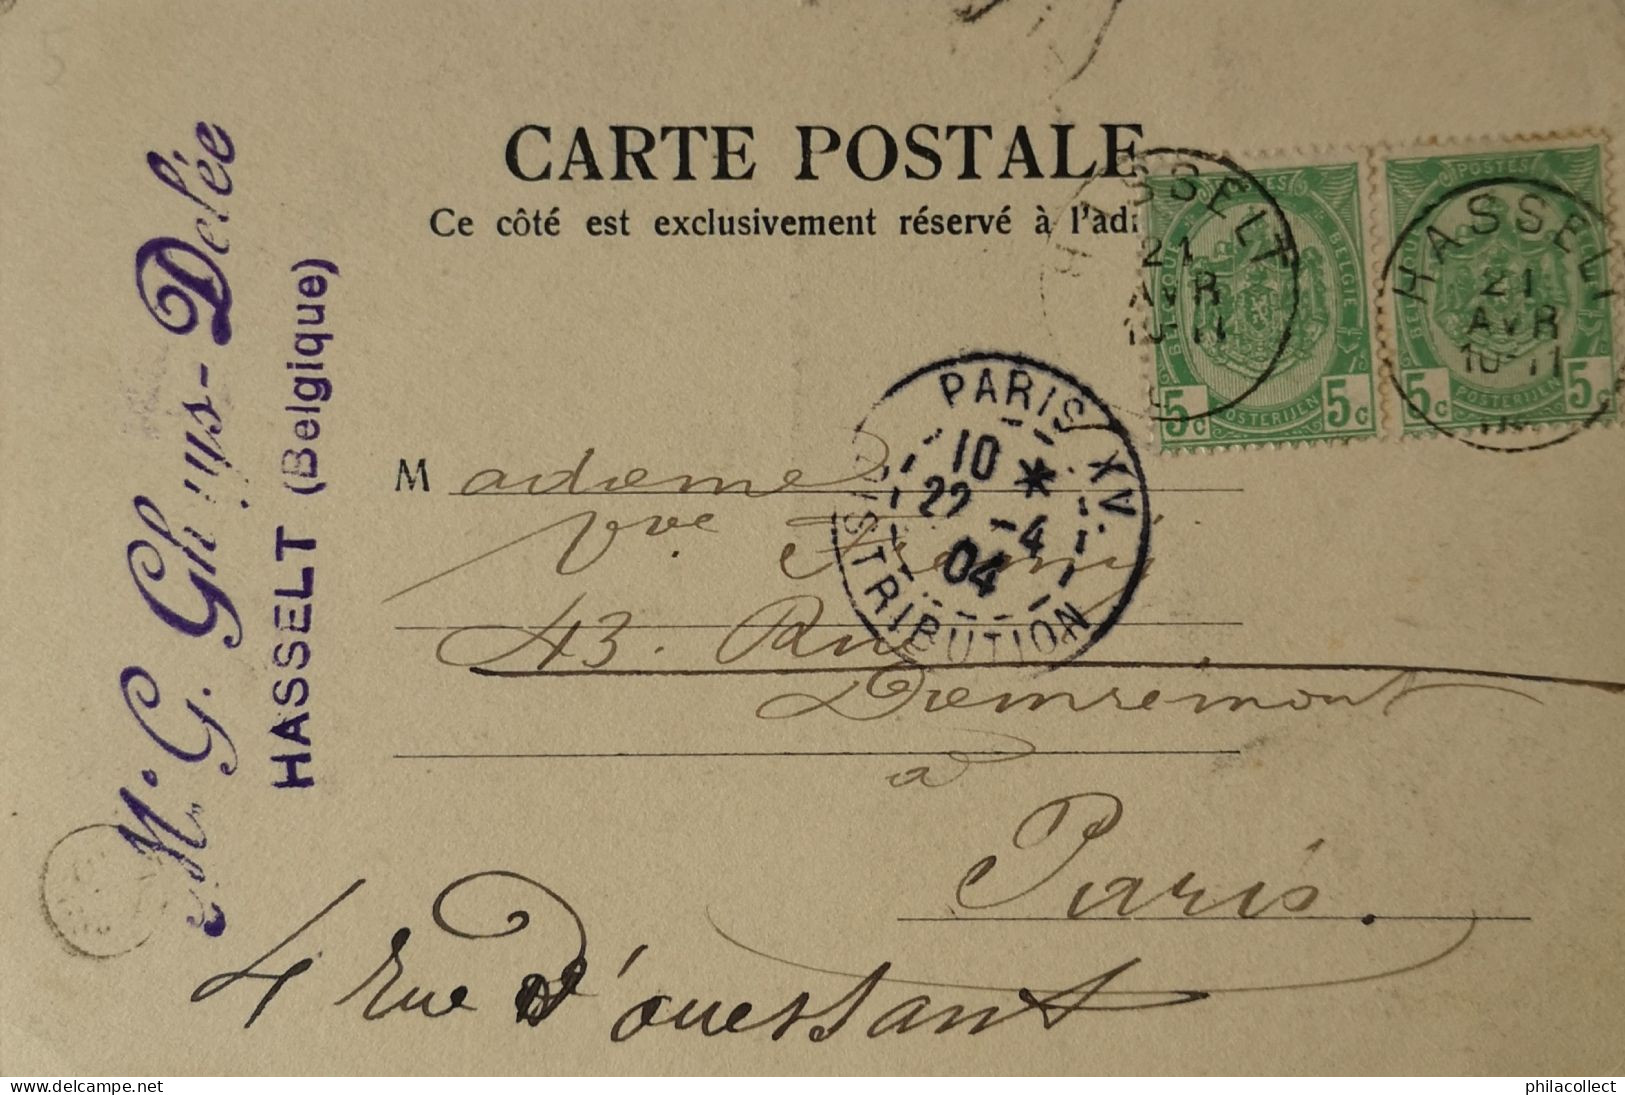 CARTE POSTALE
Ce côté est exclusivement réservé à l'adr
Mr G. Ghuys-Delée
HASSELT (Belgique)
HASSELT
21
AVR
10-11
HASSELT
21
AVR
10-11
POSTES
BELGIQUE BELGIE
5c POSTERIJEN 5c
POSTES
BELGIQUE BELGIE
5c POSTERIJEN 5c
PARIS XV.
10 *
22 -4
04
DISTRIBUTION
Madame
Vve
43. Rue
Domrémont
à
Paris.
4 rue D'ouessant
www.delcampe.net
philacollect